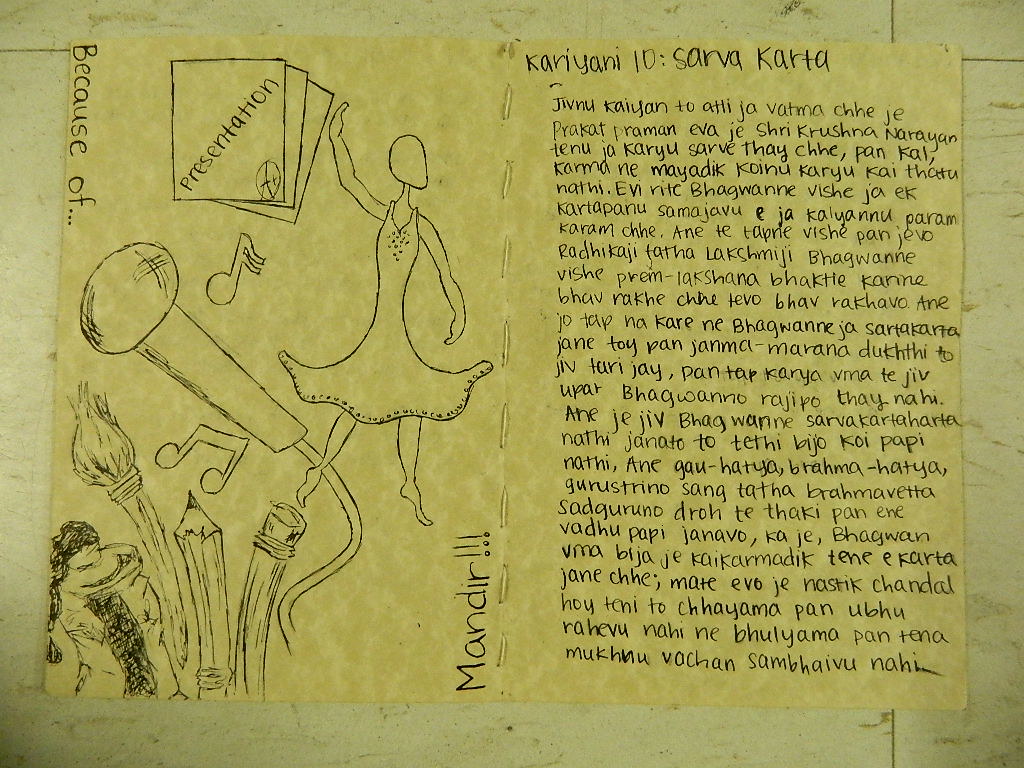 Because of...
Presentation
A+
Mandir!!!
Kariyani 10: Sarva Karta
Jivnu kalyan to atli ja vatma chhe je
Prakat praman eva je Shri Krushna Narayan
tenu ja karyu sarve thay chhe, pan kal,
karma ne mayadik koinu karyu kai thatu
nathi. Evi rite Bhagwanne vishe ja ek
kartapanu samajavu e ja kalyannu param
karam chhe. Ane te tapne vishe pan jevo
Radhikaji tatha Lakshmiji Bhagwanne
vishe prem-lakshana bhaktie karine
bhav rakhe chhe tevo bhav rakhavo. Ane
jo tap na kare ne Bhagwanne ja sartakarta
jane toy pan janma-marana dukhthi to
jiv tari jay, pan tap karya vina te jiv
upar Bhagwanno rajipo thay nahi.
Ane je jiv Bhagwanne sarvakartaharta
nathi janato to tethi bijo koi papi
nathi, Ane gau-hatya, brahma-hatya,
gurustrino sang tatha brahmavetta
sadguruno droh te thaki pan ene
vadhu papi janavo, ka je, Bhagwan
vina bija je kalkarmadik tene e karta
jane chhe; mate evo je nastik chandal
hoy teni to chhayama pan ubhu
rahevu nahi ne bhulyama pan tena
mukhnu vachan sambhalvu nahi